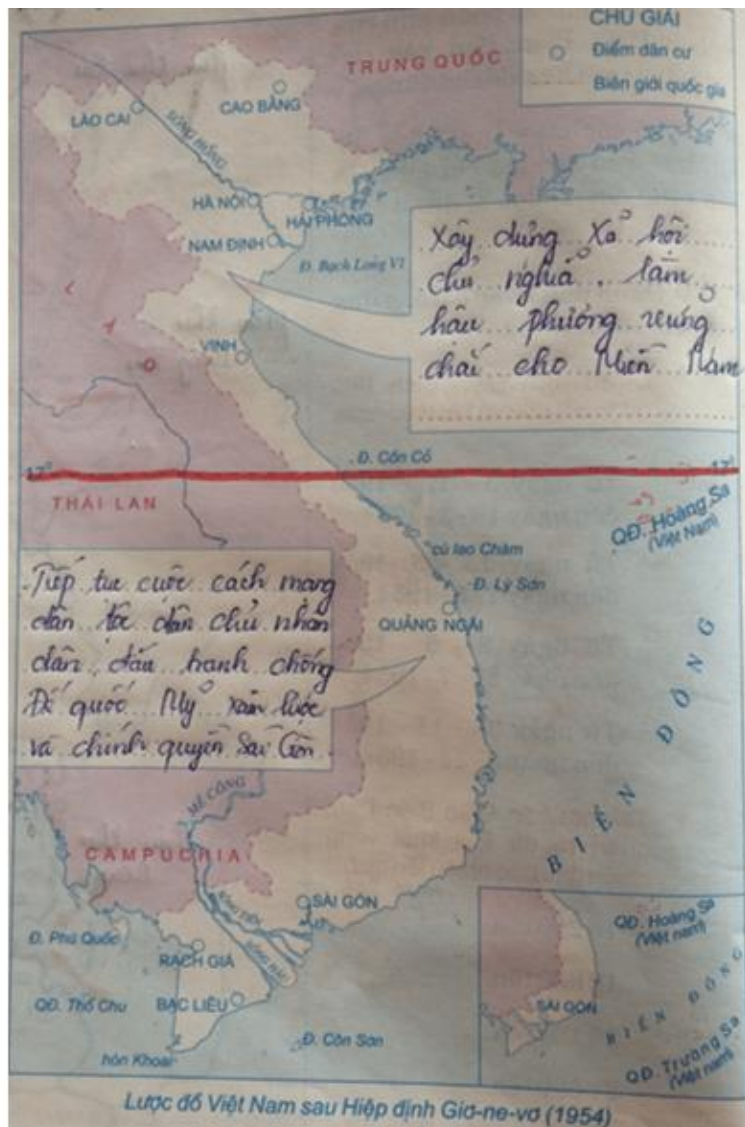 CHÚ GIẢI
Điểm dân cư
Biên giới quốc gia
TRUNG QUỐC
LÀO CAI
CAO BẰNG
SÔNG HỒNG
HÀ NỘI
HẢI PHÒNG
NAM ĐỊNH
Đ. Bạch Long Vĩ
Xây dựng Xã hội
chủ nghĩa, làm
hậu phương vững
chắc cho Miền Nam
LÀO
VINH
Đ. Cồn Cỏ
17°
17°
THÁI LAN
QĐ. Hoàng Sa
(Việt Nam)
cù lao Chàm
Đ. Lý Sơn
QUẢNG NGÃI
Tiếp tục cuộc cách mạng
dân tộc dân chủ nhân
dân, đấu tranh chống
Đế quốc Mỹ xâm lược
và chính quyền Sài Gòn.
BIỂN ĐÔNG
MÊ CÔNG
CAMPUCHIA
SÀI GÒN
SÔNG TIỀN
SÔNG HẬU
Đ. Phú Quốc
RẠCH GIÁ
QĐ. Thổ Chu
BẠC LIÊU
Đ. Côn Sơn
hòn Khoai
QĐ. Hoàng Sa
(Việt nam)
SÀI GÒN
BIỂN ĐÔNG
QĐ. Trường Sa
(Việt nam)
Lược đồ Việt Nam sau Hiệp định Giơ-ne-vơ (1954)